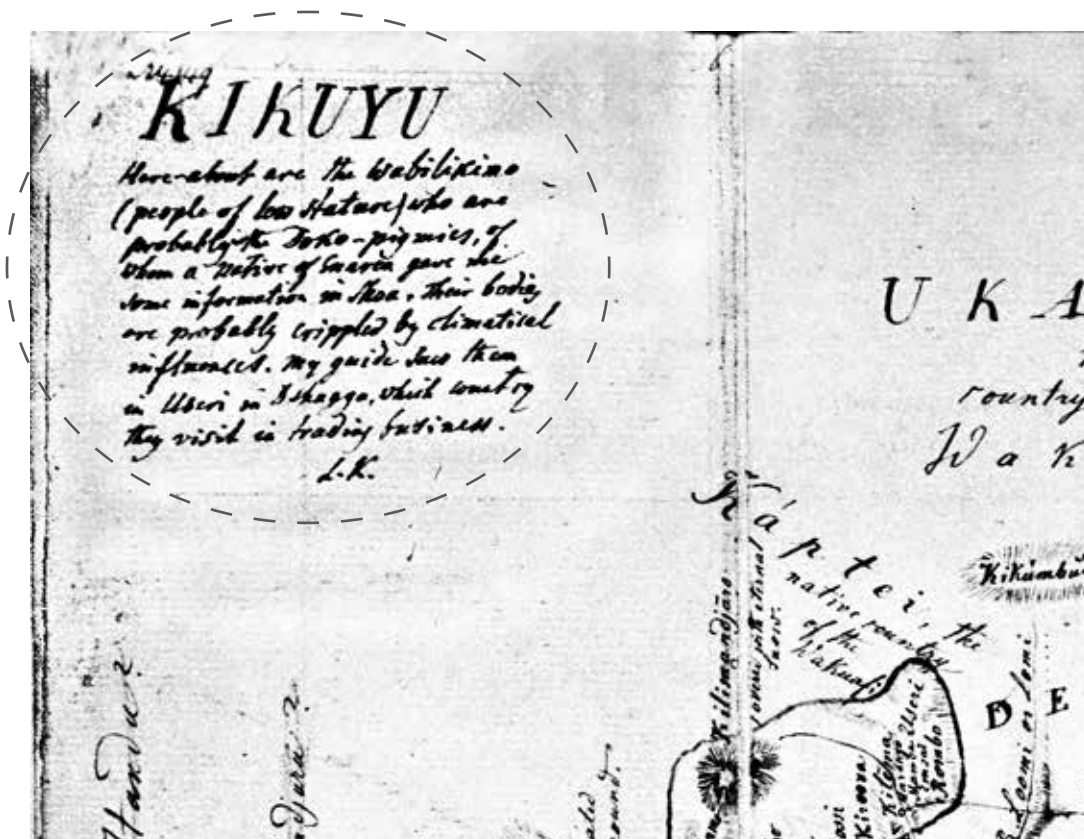 KIKUYU
Here-about are the Wabilikimo
(people of low stature) who are
probably the Doko-pigmies, of
whom a native of Enarea gave me
some information in Shoa. Their bodies
are probably crippled by climatical
influences. My guide saw them
in Useri in Dshagga, which country
they visit in trading business.
L.K.
UKA
country
Wak
Káptei, the
native country
of the
Wakuafi
Kikúmbu
Kilimandjáro
covered with eternal
snow.
DE
Loomi or Lomi
Useri
Rombo